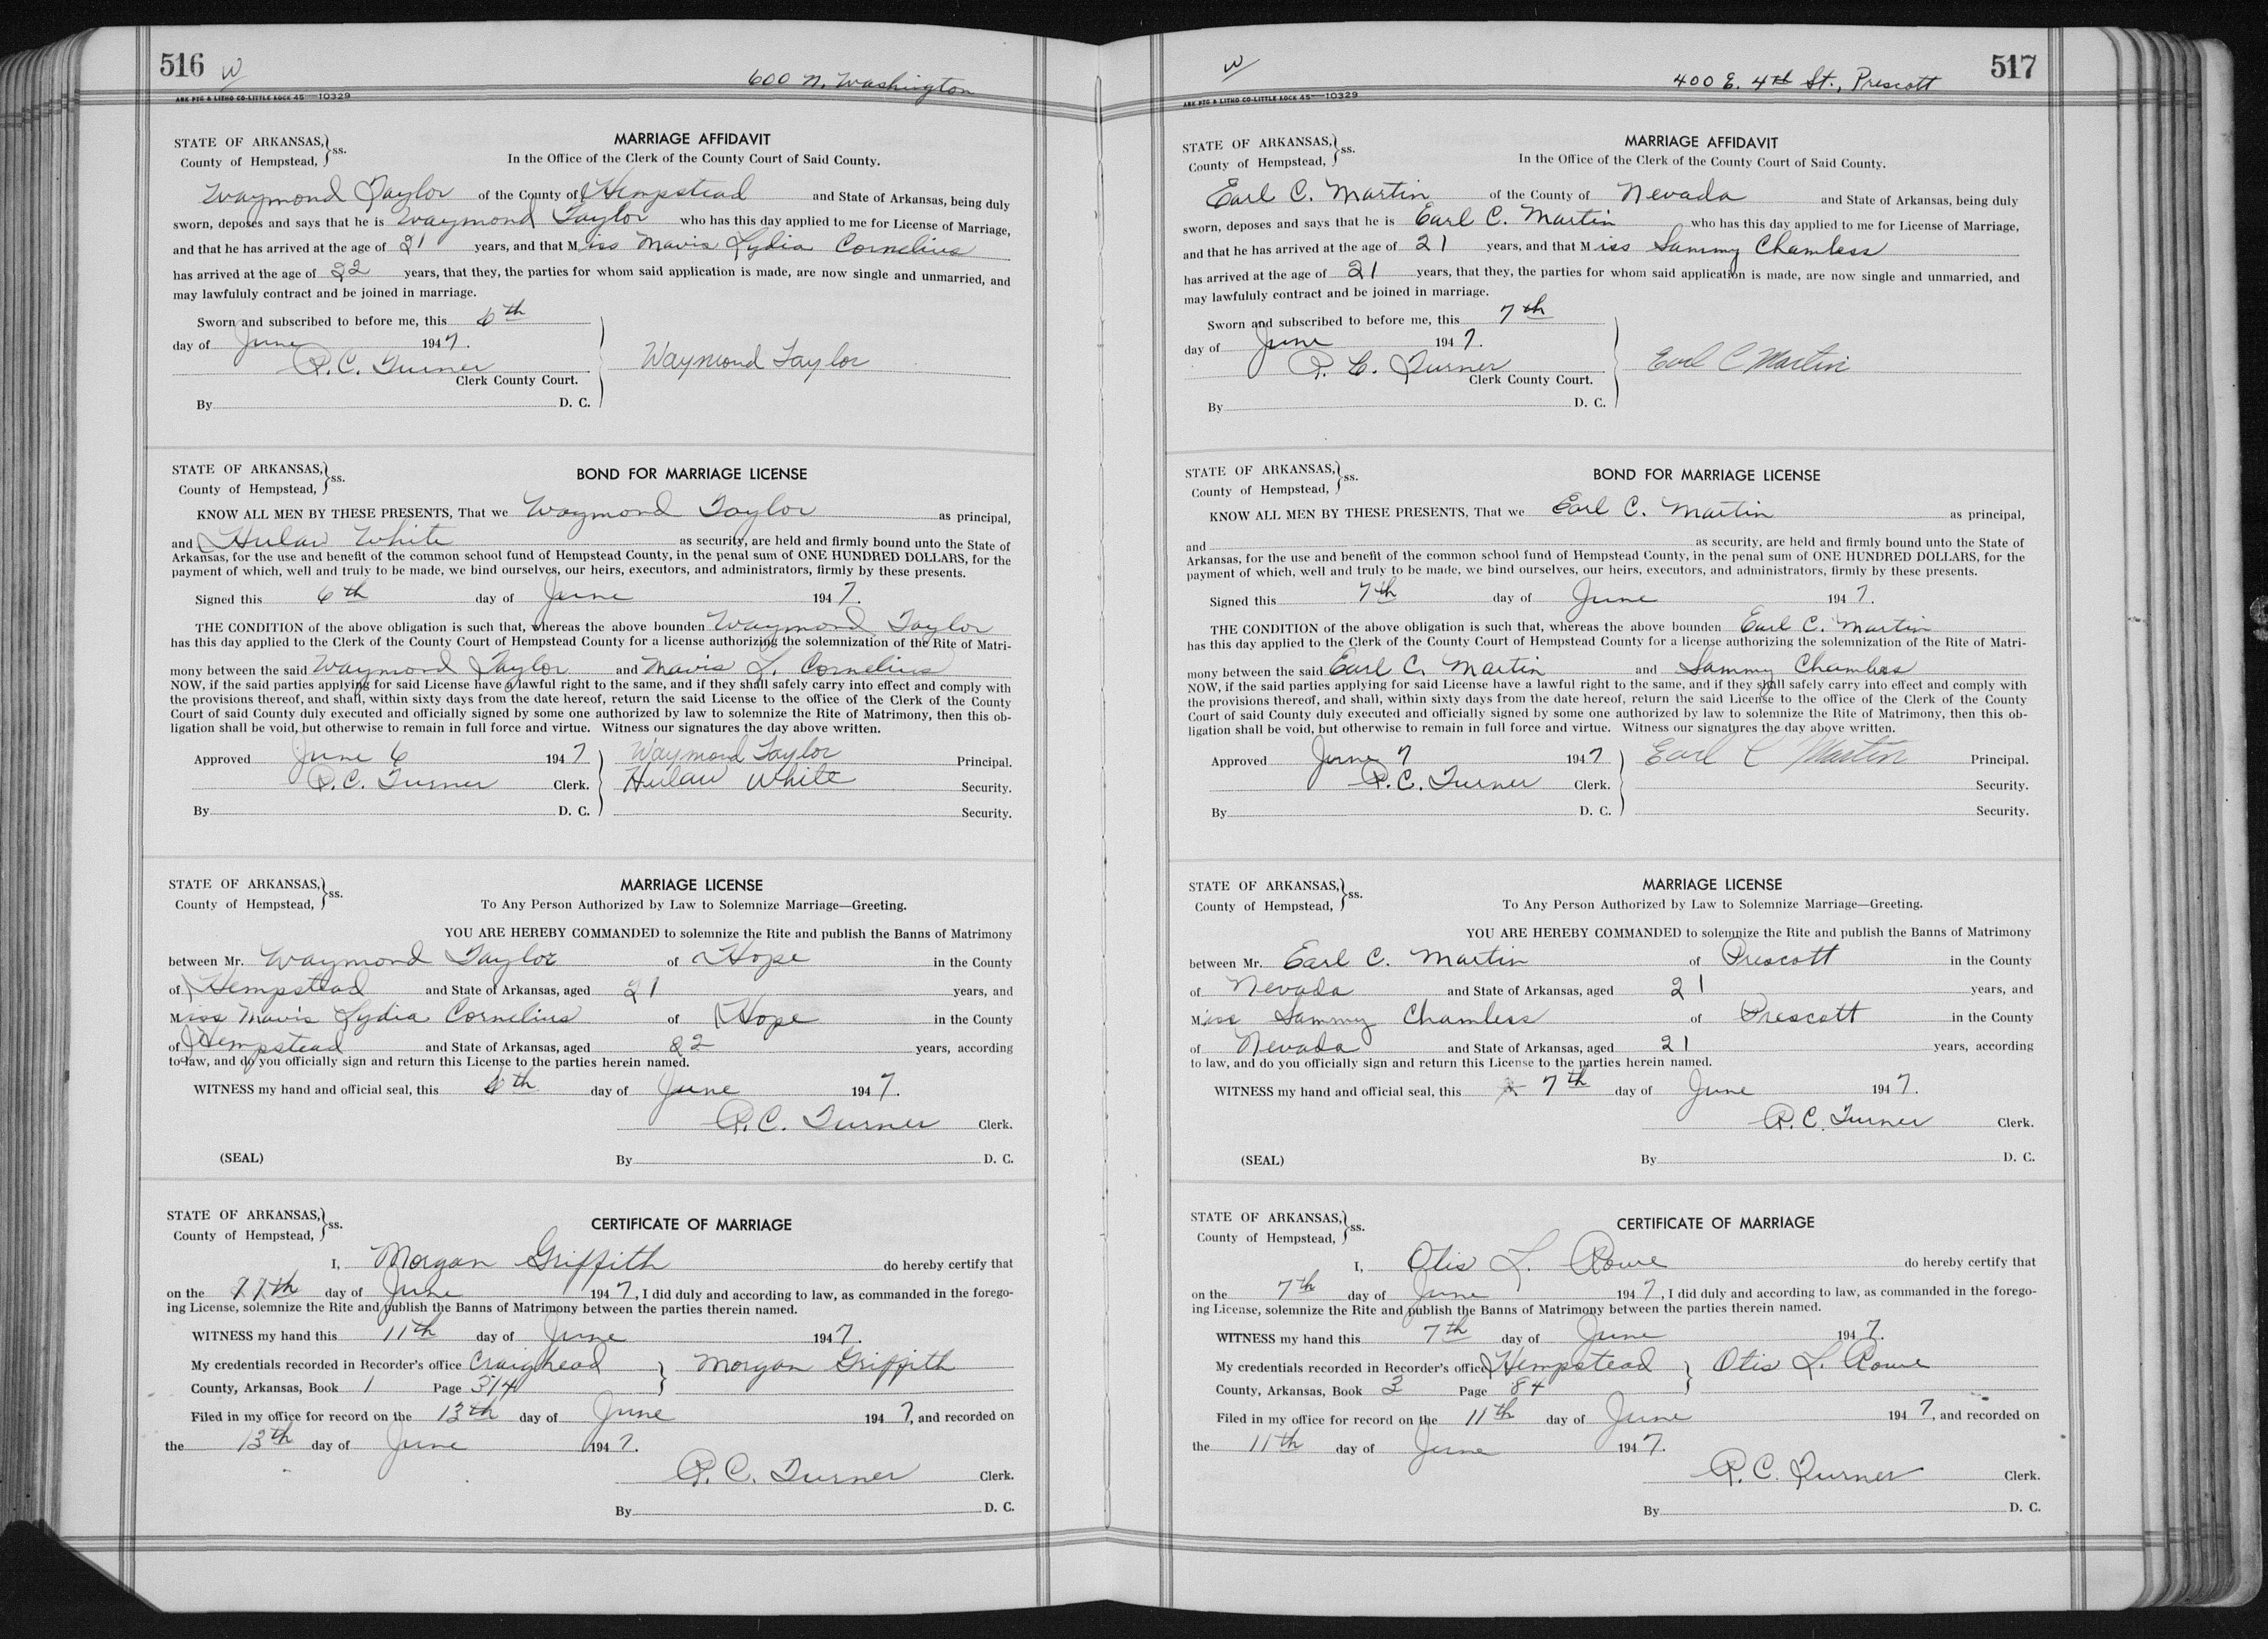 516 W
600 N. Washington
ARK PTG & LITHO CO-LITTLE ROCK 45—10329
STATE OF ARKANSAS, } ss.
County of Hempstead,
MARRIAGE AFFIDAVIT
In the Office of the Clerk of the County Court of Said County.
Waymond Taylor of the County of Hempstead and State of Arkansas, being duly
sworn, deposes and says that he is Waymond Taylor who has this day applied to me for License of Marriage,
and that he has arrived at the age of 21 years, and that Miss Mavis Lydia Cornelius
has arrived at the age of 22 years, that they, the parties for whom said application is made, are now single and unmarried, and
may lawfululy contract and be joined in marriage.
Sworn and subscribed to before me, this 6th
day of June 1947.
R. C. Turner Waymond Taylor
Clerk County Court.
By D. C.
STATE OF ARKANSAS, } ss.
County of Hempstead,
BOND FOR MARRIAGE LICENSE
KNOW ALL MEN BY THESE PRESENTS, That we Waymond Taylor as principal,
and Hulaw White as security, are held and firmly bound unto the State of
Arkansas, for the use and benefit of the common school fund of Hempstead County, in the penal sum of ONE HUNDRED DOLLARS, for the
payment of which, well and truly to be made, we bind ourselves, our heirs, executors, and administrators, firmly by these presents.
Signed this 6th day of June 1947.
THE CONDITION of the above obligation is such that, whereas the above bounden Waymond Taylor
has this day applied to the Clerk of the County Court of Hempstead County for a license authorizing the solemnization of the Rite of Matri-
mony between the said Waymond Taylor and Mavis L. Cornelius
NOW, if the said parties applying for said License have a lawful right to the same, and if they shall safely carry into effect and comply with
the provisions thereof, and shall, within sixty days from the date hereof, return the said License to the office of the Clerk of the County
Court of said County duly executed and officially signed by some one authorized by law to solemnize the Rite of Matrimony, then this ob-
ligation shall be void, but otherwise to remain in full force and virtue. Witness our signatures the day above written.
Approved June 6 1947 Waymond Taylor Principal.
R. C. Turner Clerk. Hulaw White Security.
By D. C. Security.
STATE OF ARKANSAS, } ss.
County of Hempstead,
MARRIAGE LICENSE
To Any Person Authorized by Law to Solemnize Marriage—Greeting.
YOU ARE HEREBY COMMANDED to solemnize the Rite and publish the Banns of Matrimony
between Mr. Waymond Taylor of Hope in the County
of Hempstead and State of Arkansas, aged 21 years, and
Miss Mavis Lydia Cornelius of Hope in the County
of Hempstead and State of Arkansas, aged 22 years, according
to law, and do you officially sign and return this License to the parties herein named.
WITNESS my hand and official seal, this 6th day of June 1947.
R. C. Turner Clerk.
(SEAL) By D. C.
STATE OF ARKANSAS, } ss.
County of Hempstead,
CERTIFICATE OF MARRIAGE
I, Morgan Griffith do hereby certify that
on the 11th day of June 1947, I did duly and according to law, as commanded in the forego-
ing License, solemnize the Rite and publish the Banns of Matrimony between the parties therein named.
WITNESS my hand this 11th day of June 1947.
My credentials recorded in Recorder's office Craighead Morgan Griffith
County, Arkansas, Book 1 Page 314
Filed in my office for record on the 13th day of June 1947, and recorded on
the 13th day of June 1947.
R. C. Turner Clerk.
By D. C.
W 517
400 E. 4th St., Prescott
ARK PTG & LITHO CO-LITTLE ROCK 45—10329
STATE OF ARKANSAS, } ss.
County of Hempstead,
MARRIAGE AFFIDAVIT
In the Office of the Clerk of the County Court of Said County.
Earl C. Martin of the County of Nevada and State of Arkansas, being duly
sworn, deposes and says that he is Earl C. Martin who has this day applied to me for License of Marriage,
and that he has arrived at the age of 21 years, and that Miss Sammy Chamless
has arrived at the age of 21 years, that they, the parties for whom said application is made, are now single and unmarried, and
may lawfululy contract and be joined in marriage.
Sworn and subscribed to before me, this 7th
day of June 1947.
R. C. Turner Earl C Martin
Clerk County Court.
By D. C.
STATE OF ARKANSAS, } ss.
County of Hempstead,
BOND FOR MARRIAGE LICENSE
KNOW ALL MEN BY THESE PRESENTS, That we Earl C. Martin as principal,
and as security, are held and firmly bound unto the State of
Arkansas, for the use and benefit of the common school fund of Hempstead County, in the penal sum of ONE HUNDRED DOLLARS, for the
payment of which, well and truly to be made, we bind ourselves, our heirs, executors, and administrators, firmly by these presents.
Signed this 7th day of June 1947.
THE CONDITION of the above obligation is such that, whereas the above bounden Earl C. Martin
has this day applied to the Clerk of the County Court of Hempstead County for a license authorizing the solemnization of the Rite of Matri-
mony between the said Earl C. Martin and Sammy Chamless
NOW, if the said parties applying for said License have a lawful right to the same, and if they shall safely carry into effect and comply with
the provisions thereof, and shall, within sixty days from the date hereof, return the said License to the office of the Clerk of the County
Court of said County duly executed and officially signed by some one authorized by law to solemnize the Rite of Matrimony, then this ob-
ligation shall be void, but otherwise to remain in full force and virtue. Witness our signatures the day above written.
Approved June 7 1947 Earl C Martin Principal.
R. C. Turner Clerk. Security.
By D. C. Security.
STATE OF ARKANSAS, } ss.
County of Hempstead,
MARRIAGE LICENSE
To Any Person Authorized by Law to Solemnize Marriage—Greeting.
YOU ARE HEREBY COMMANDED to solemnize the Rite and publish the Banns of Matrimony
between Mr. Earl C. Martin of Prescott in the County
of Nevada and State of Arkansas, aged 21 years, and
Miss Sammy Chamless of Prescott in the County
of Nevada and State of Arkansas, aged 21 years, according
to law, and do you officially sign and return this License to the parties herein named.
WITNESS my hand and official seal, this 7th day of June 1947.
R. C. Turner Clerk.
(SEAL) By D. C.
STATE OF ARKANSAS, } ss.
County of Hempstead,
CERTIFICATE OF MARRIAGE
I, Otis L. Rowe do hereby certify that
on the 7th day of June 1947, I did duly and according to law, as commanded in the forego-
ing License, solemnize the Rite and publish the Banns of Matrimony between the parties therein named.
WITNESS my hand this 7th day of June 1947.
My credentials recorded in Recorder's office Hempstead Otis L. Rowe
County, Arkansas, Book 3 Page 84
Filed in my office for record on the 11th day of June 1947, and recorded on
the 11th day of June 1947.
R. C. Turner Clerk.
By D. C.